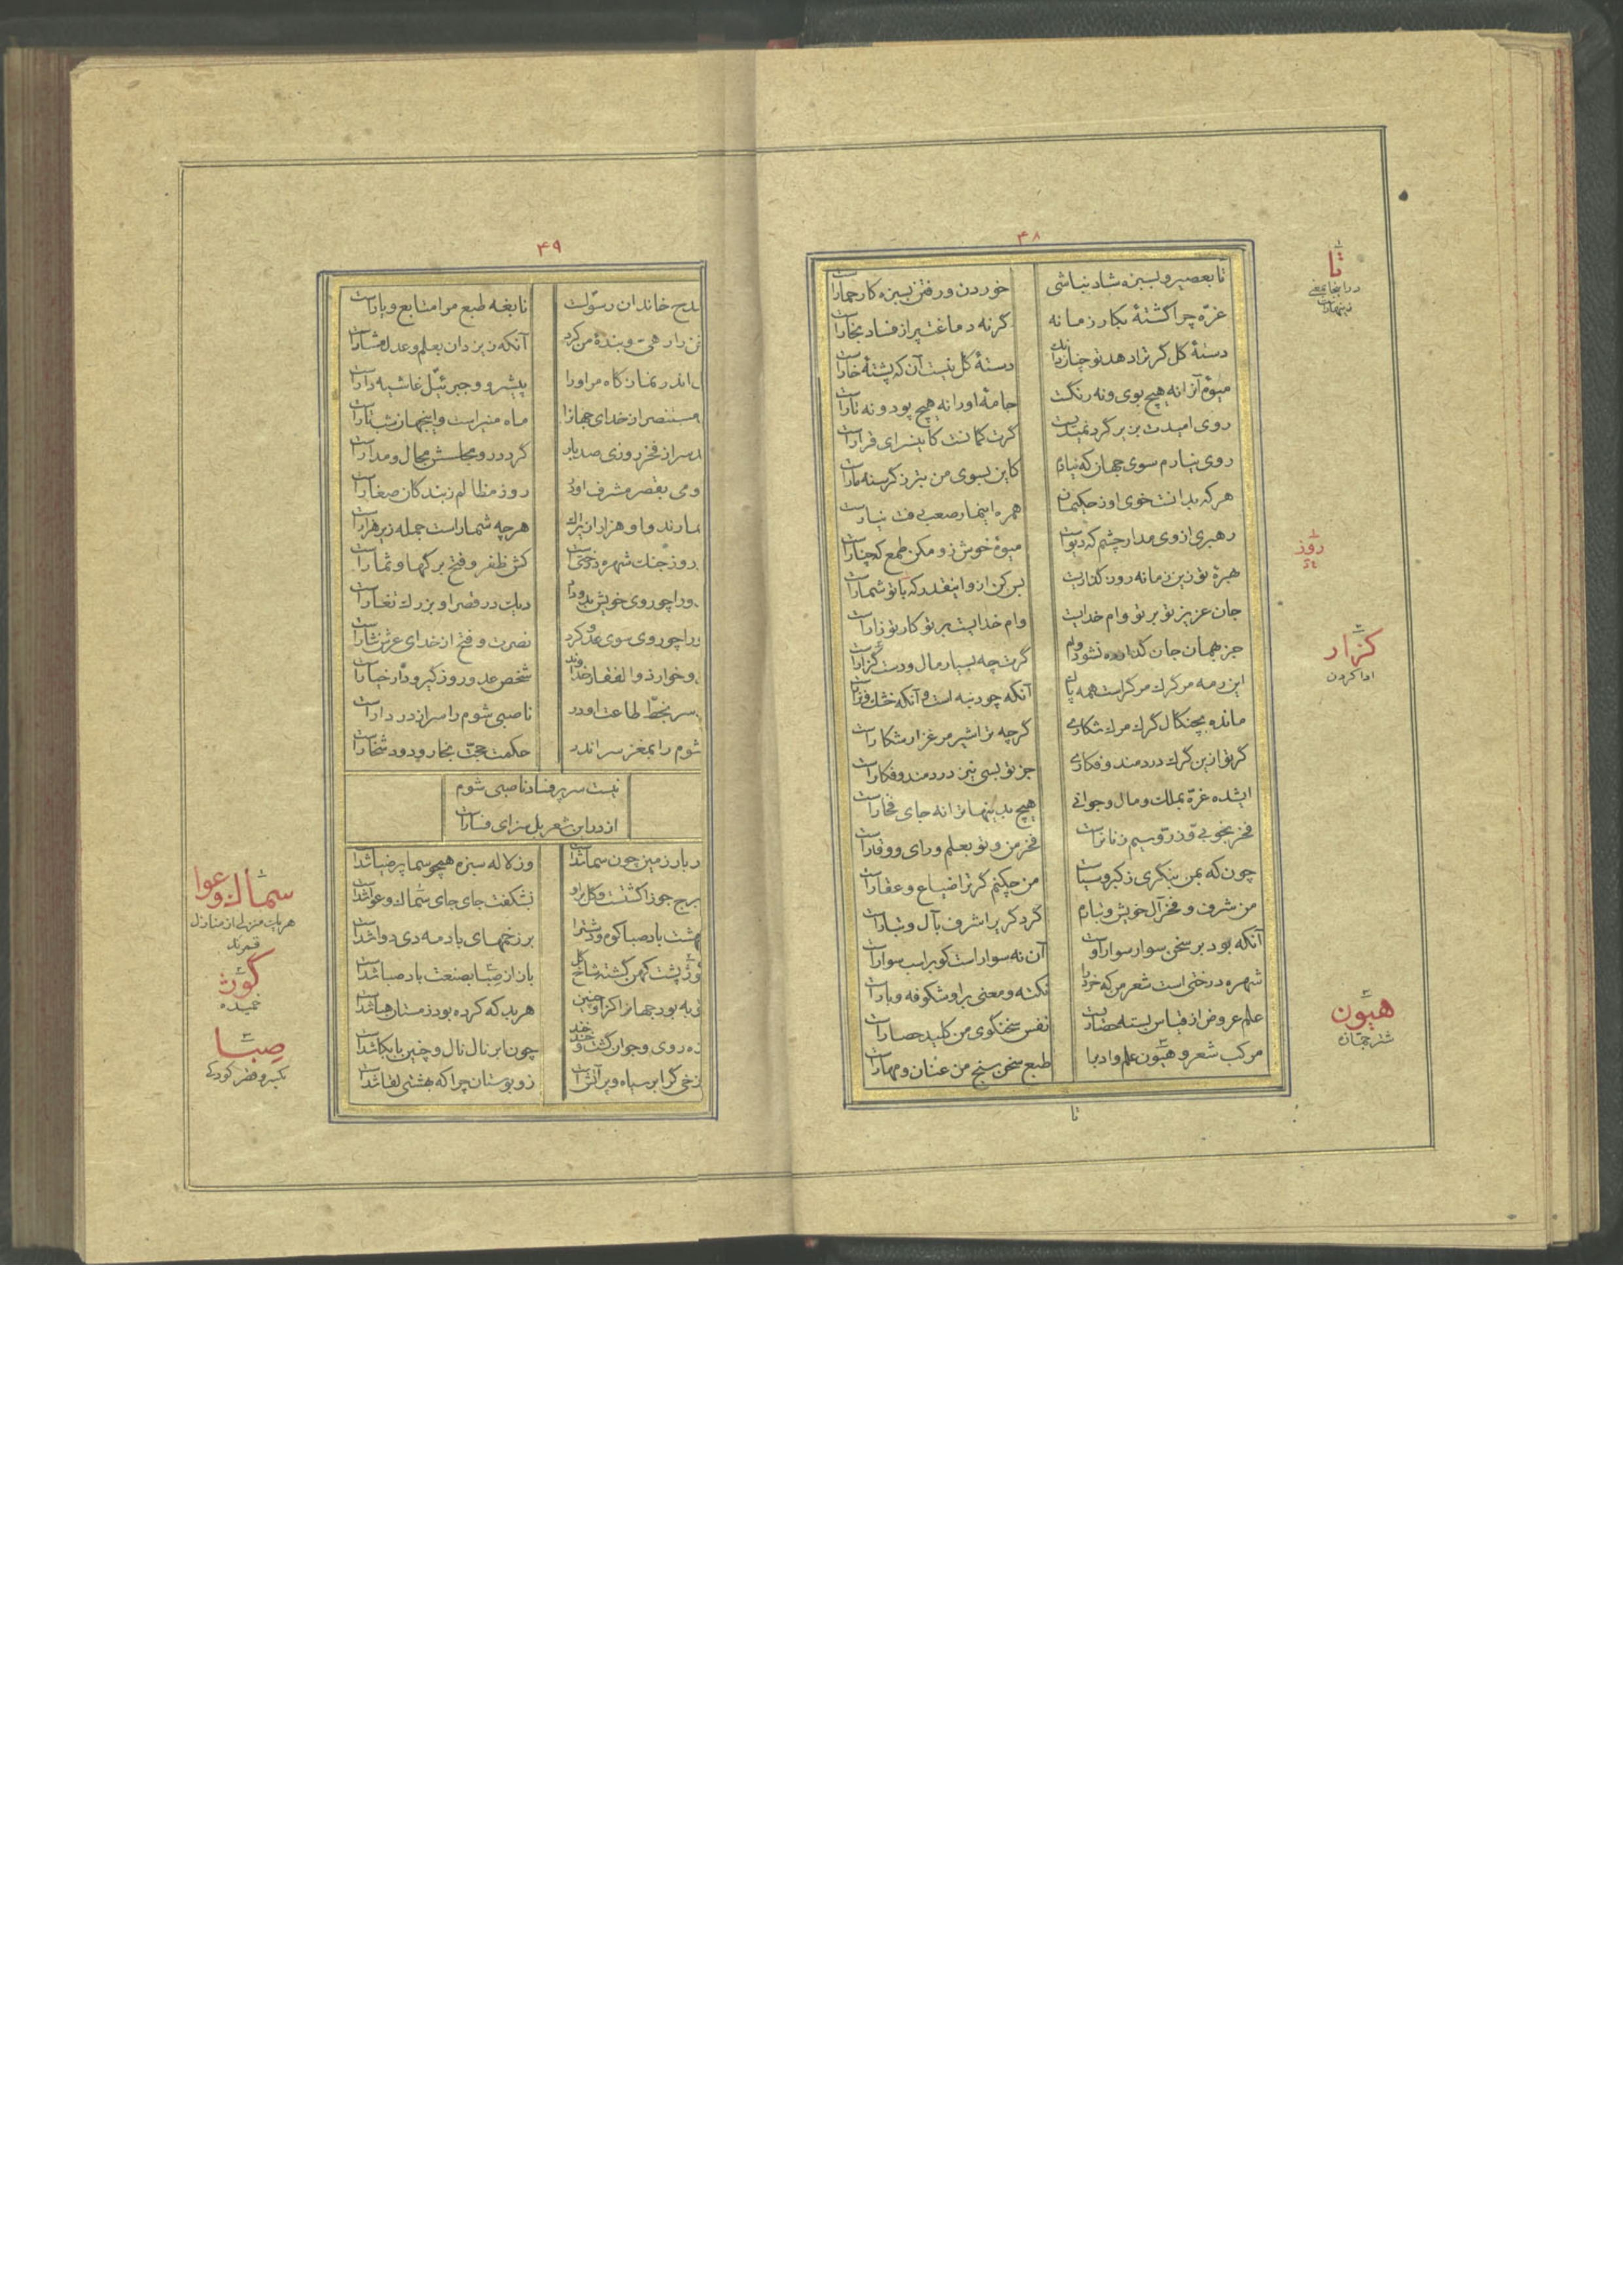 ۴۸
تا بعصیر و بسبزه شاد نباشی خوردن و رفتن بسبزه کار حمارست
غرّه چرا گشتهٔ بکار زمانه گر نه دماغت پر از فساد بخارست
دستهٔ گل گر ترا دهد تو چنان دان دستهٔ گل نیست آن که پشتهٔ خارست
میوهٔ آنرا نه هیچ بوی و نه رنگست جامهٔ او را نه هیچ پود و نه تارست
روی امیدت بزیر گرد نمیدیست گرت گمانست کاین سرای قرارست
روی نیارم سوی جهان که نیارم کاین بسوی من بتر ز گرسنه مارست
هر که بدانست خوی او ز حکیمان همره این مار صعب رفت نیارست
رهبری از وی مدار چشم که دیوست میوهٔ خوش زو مکن طمع که چنارست
بهرهٔ تو زین زمانه روز گذاریست بس کن ازو اینقدر که با تو شمارست
جان عزیز تو بر تو وام خدایست وام خدایست بر تو کار تو زارست
جز بجهان جان گذارده نشود وام گرت چه بسیار مال و دست گزارست
این رمه مر گرگ مرگ راست همه پاک آنکه چو دنبه است و آنکه خشک و نزارست
مانده بچنگال گرگ مرگ شکاری گرچه ترا شیر مرغزار شکارست
گر تو ازین گرگ دردمند و فکاری جز تو بسی نیز دردمند و فکارست
ایشده غرّه بملک و مال و جوانی هیچ بدینها ترا نه جای فخارست
فخر بخوبی و زر و سیم زنانراست فخر من و تو بعلم و رای و وقارست
چونکه بمن ننگری ز کبر و سیاست من چکنم گر ترا ضیاع و عقارست
من شرف و فخر آل خویش و تبارم گر دگر یرا شرف بآل و تبارست
آنکه بود بر سخن سوار سوار اوست آن نه سوارست کو بر اسب سوارست
شهره درختی است شعر من که خرد را نکته و معنی براو شکوفه و بارست
علم عروض از قیاس بسته حصاریست نفس سخنگوی من کلید حصارست
مرکب شعر و هیون علم و ادب را طبع سخن سنج من عنان و مهارست
تا
تا
در اینجا بمعنی
روز
گزار
ادا کردن
هیون
شتر جمّازه
۴۹
مدح خاندان رسولست نابغه طبع مرا متابع و یارست
دار رهی و بندهٔ من کرد آنکه ز یزدان بعلم و عدل مشارست
اندر نماز گاه مر او را پیشرو و جبرئیل غاشیه دارست
مستنصر از خدای جهانرا ماه منیرست و اینجهان شب تارست
سر از فخر روزی صد بار گرد در و مجلسش مجال و مدارست
رومی بقصر مشرف او در روز مظالم ز بندگان صغارست
مارند و او هزار بزرگ هر چه شمارست جمله زیر هزارست
روز جنگ شهره درختی است کش ظفر و فتح برگها و ثمارست
ورا چو روی خویش بدو داد دیلت در قصر او بزرگ تغارست
ورا چو روی سوی عدو کرد نصرت و فتح از خدای عرش نثارست
وخوار ذوالفقار خداوند شخص عدو روز گیر و دار خیارست
سر بخطّ طاعت او در ناصبی شوم را سر از در دارست
شوم را بمغز سر اندر حکمت حجّت بخار و دود شخارست
نیست سر پر فساد ناصبی شوم
از در این شعر بل سزای فسارست
دربار زمین چون سما شدست وز لاله سبزه همچو سما پر ضیا شدست
برج جوزا گشت و گل براو نشگفت جای جای سماک و عوا شدست
بهشت باد صبا کوه و دشت را بر زخمهای باد مه دی دوا شدست
کوژ پشت کهن گشته شاخ گل باز از صبا بصنعت باد صبا شدست
به بود جهانرا کز او چنین هر بد که کرده بود زمستان هبا شدست
روی و جوان گشت و خند خند چون ابر نال نال و چنین با بکا شدست
زخی گر ابر سیاه و پر آتش است زو بوستان چرا که بهشتی لقا شدست
سماک و عوا
هر یک منزلی از منازل
قمرند
کوژ
خمیده
صِبا
بکسر و قصر کودکی